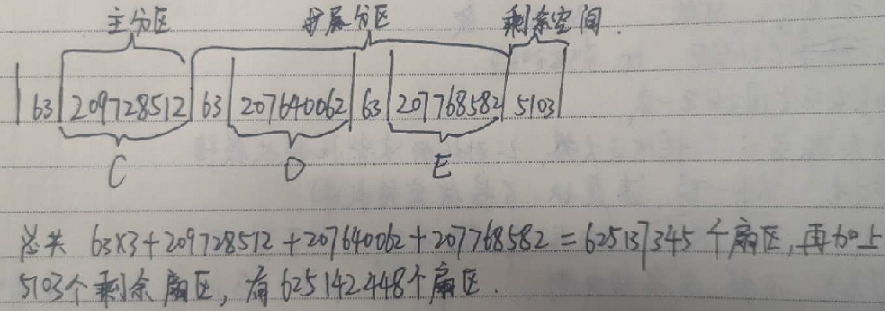 主分区 扩展分区 剩余空间.
63 209728512 63 207640062 63 207768582 5103
C D E
总共 63×3+209728512+207640062+207768582=625137345个扇区,再加上
5103个剩余扇区,有625142448个扇区.